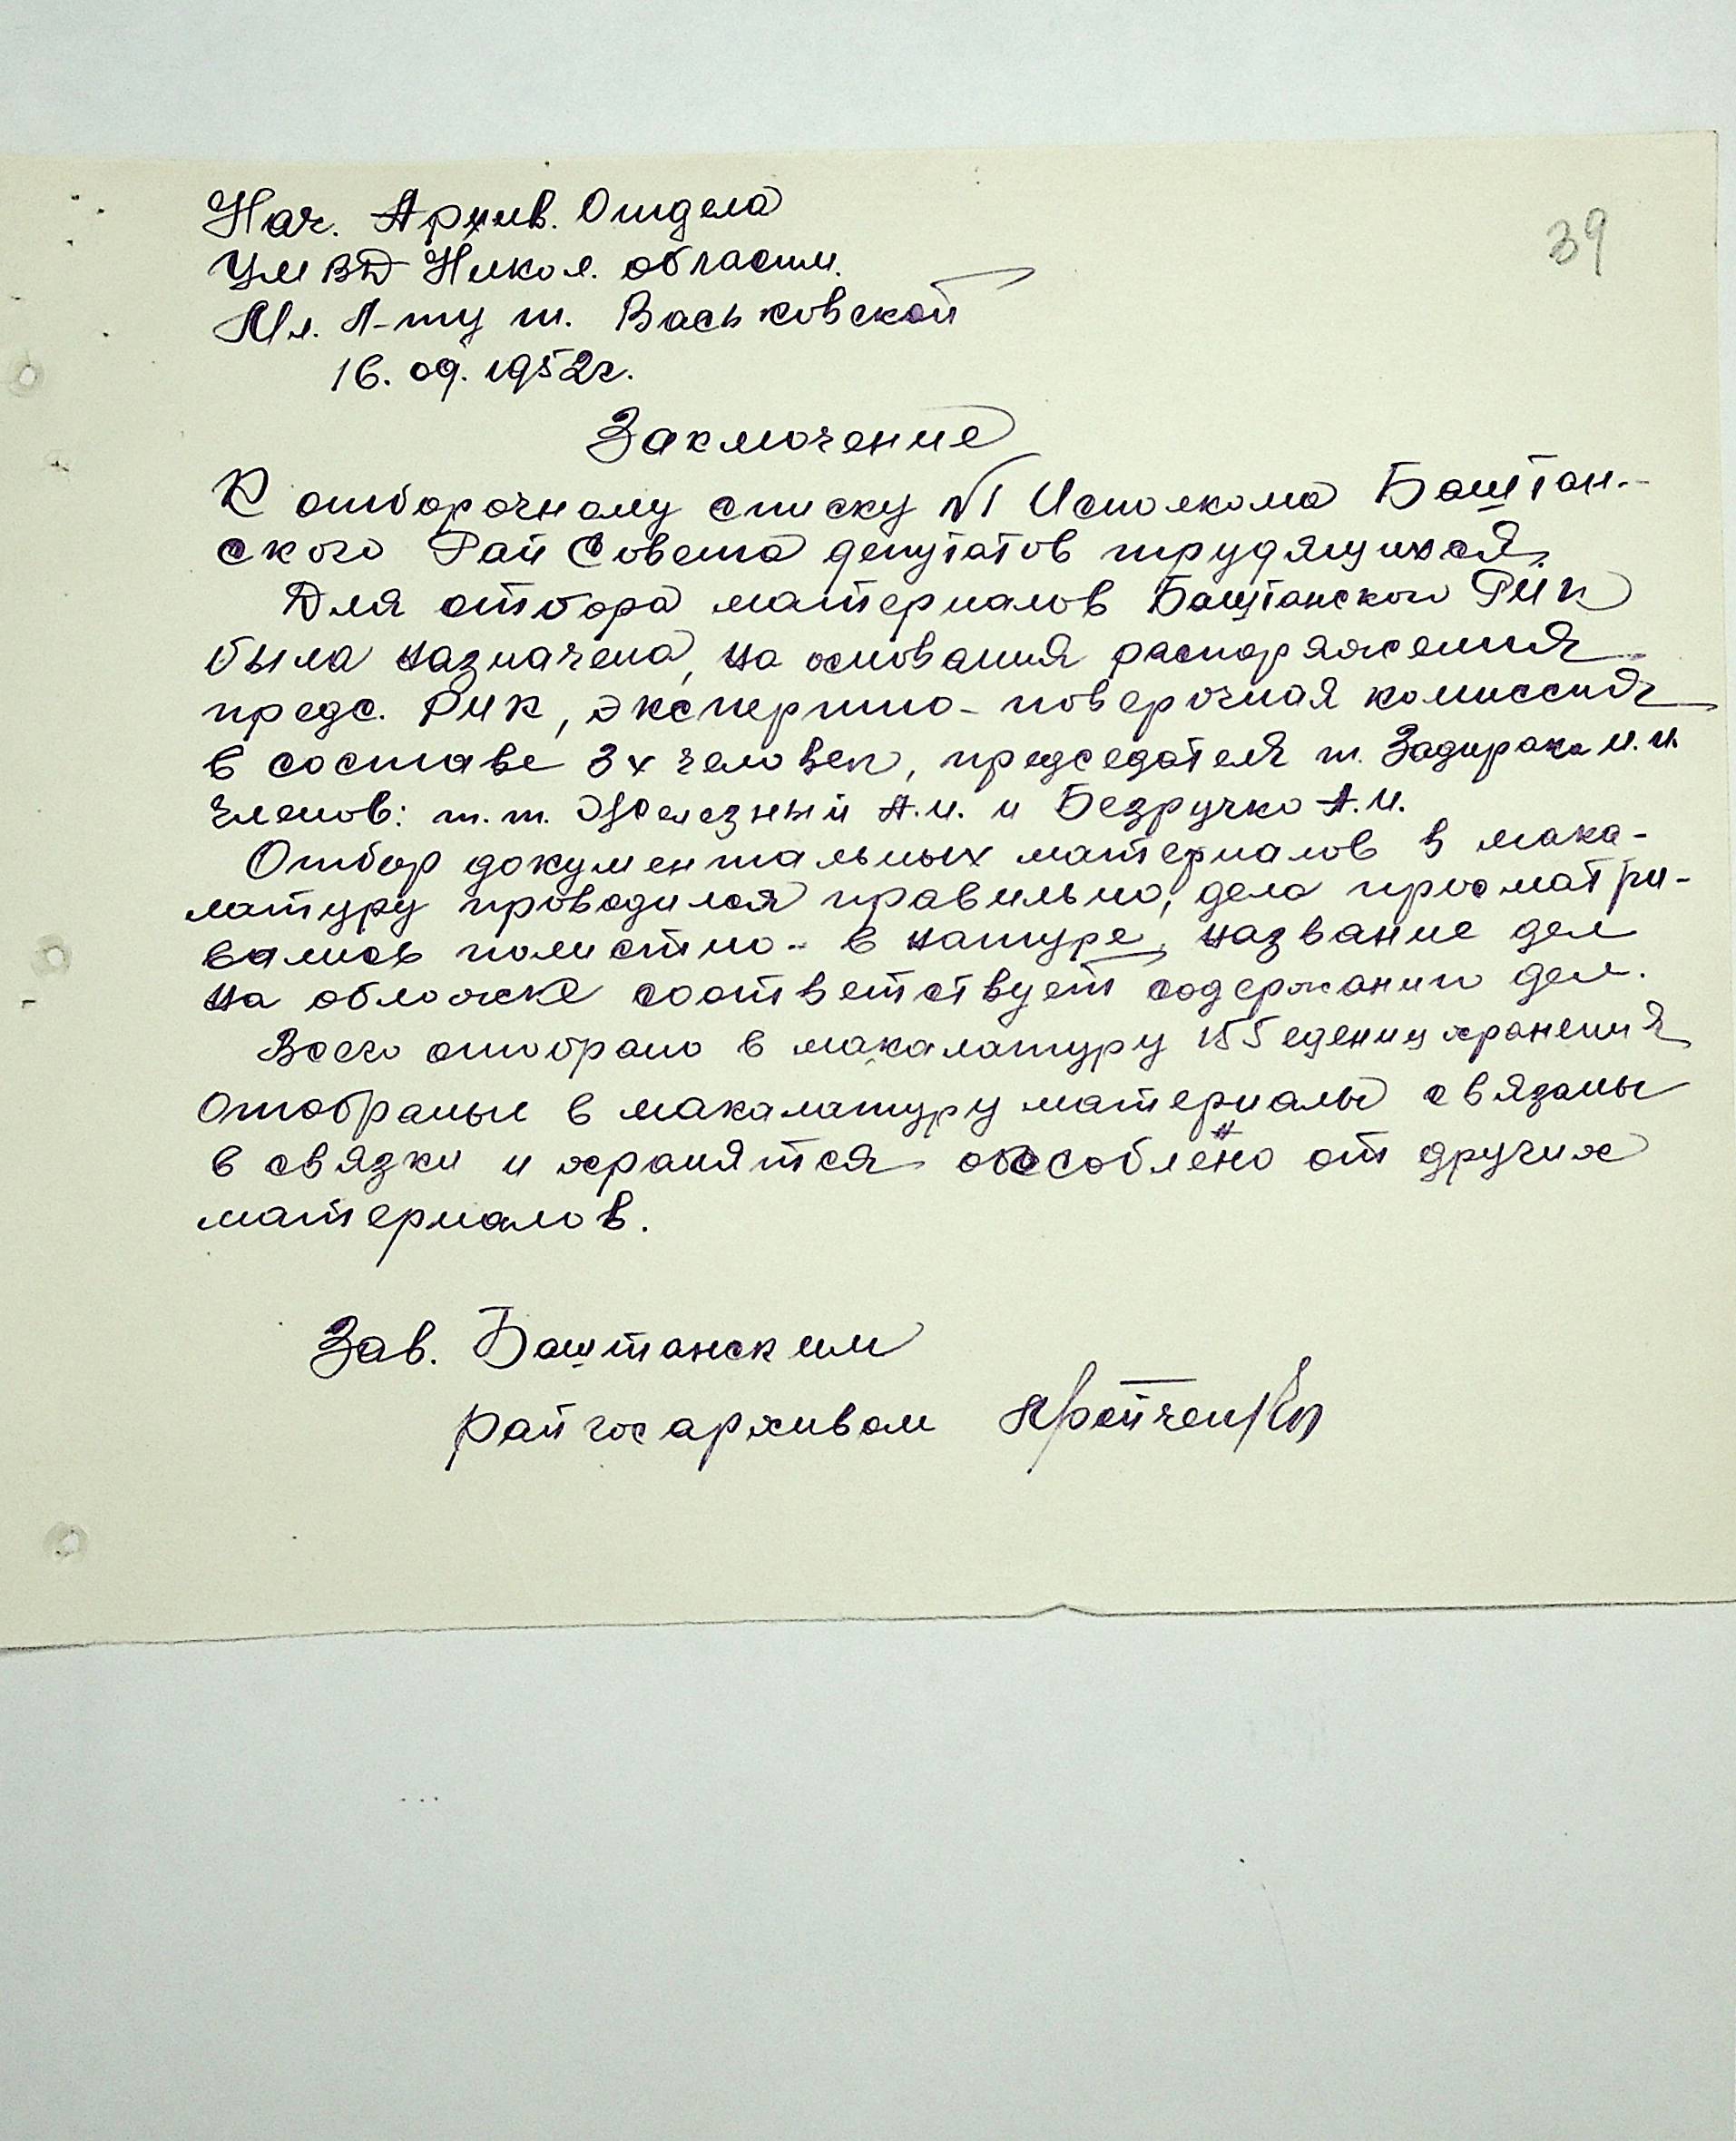 39
Нач. Архив. Отдела
УМВД Никол. области.
Мл. Л-ту т. Васьковской
16. 09. 1952г.
Заключение
К отборочному списку №1 Исполкома Баштан-
ского Рай Совета депутатов трудящихся.
Для отбора материалов Баштанского РИК
была назначена, на основания распоряжения
предс. РИК, экспертно-поверочная комиссия
в составе 3х человек, председателя т. Задирака И.И.
членов: т.т. Железный А.И. и Безручко А.И.
Отбор документальных материалов в мака-
латуру проводился правильно, дела просматри-
вались полистно - в натуре, название дел
на обложке соответствует содержанию дел.
Всего отобрано в макалатуру 155 едениц хранения
Отобраные в макалатуру материалы связаны
в связки и хранятся обособленно от других
материалов.
Зав. Баштанским
райгосархивом